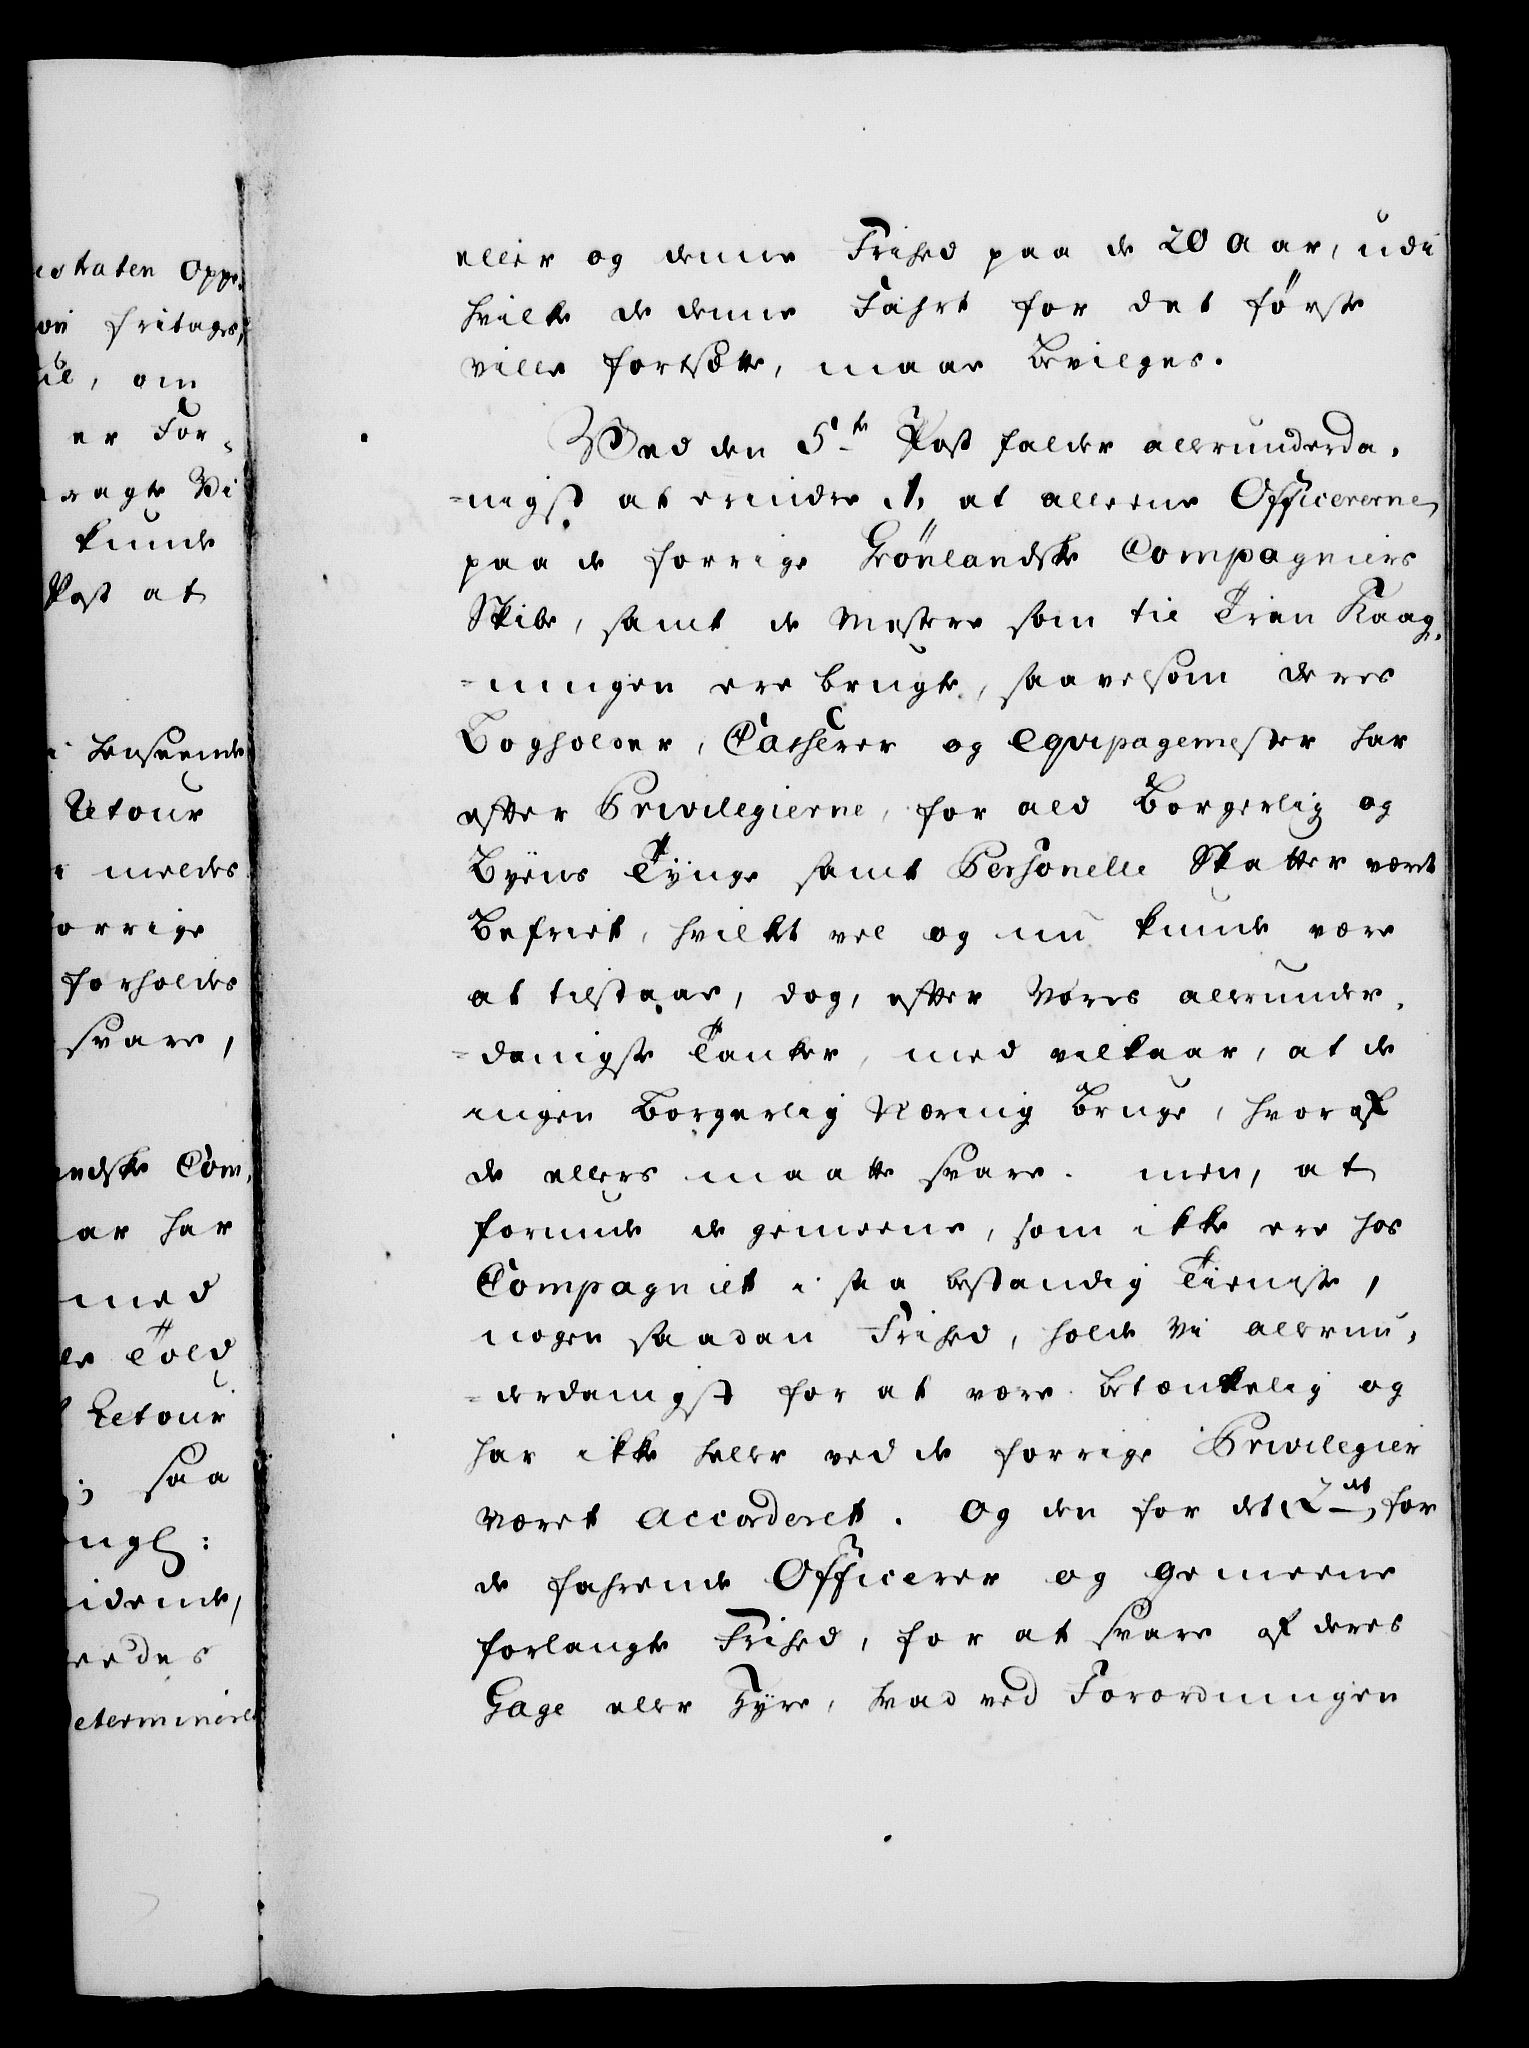 istraten Oppe-
fritages,
om
er For-
ragte Vi
kunde
Post at
henseende
Retour
meldes
forrige
forholdes
svare,
Com-
har
med
Told
Retour
saa
eller og denne Frihed paa de 20 Aar, udi
hvilke de denne Fahrt for det første
ville fortsætte, maae bevilges.
Ved den 5te Post falder allerunderda-
-nigst at erindre 1, at alleene Officererne
paa de forrige Grönlandske Compagniers
Skibe, samt de Mestere som til Tran Kaag-
-ningen ere brugte, saavelsom deres
Bogholder, Casserer og Equipagemester har
efter Privilegierne, for ald Borgerlig og
Byens Tÿnge samt Personelle Skatter vært
Befriet, hvilket vel og nu kunde være
at tilstaae, dog, efter Vores allerunder-
-danigste Tanker, med vilkaar, at de
ingen Borgerlig Næring bruge, hvoraf
de ellers maatte svare. men, at
forunde de gemeene, som ikke ere hos
Compagniet i saa bestandig Tieniste,
nogen saadan Frihed, holde Vi allerun-
-derdanigst for at være betænkelig og
har ikke heller ved de forrige Privilegier
Været accorderet. Og den for det 2det, for
de fahrende Officerer og Gemeene
forlangte Frihed, for at svare af deres
Gage eller Hÿre, hvad ved Forordningen